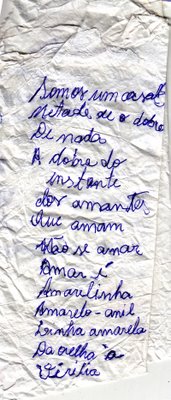 Somos um casal
Metade de o dobro
De nada
A dobra do
instante
dos amantes
Que amam
Não se amar
Amar é
Amarelinha
Amarelo-anil
Linha amarela
Da orelha à
Virília